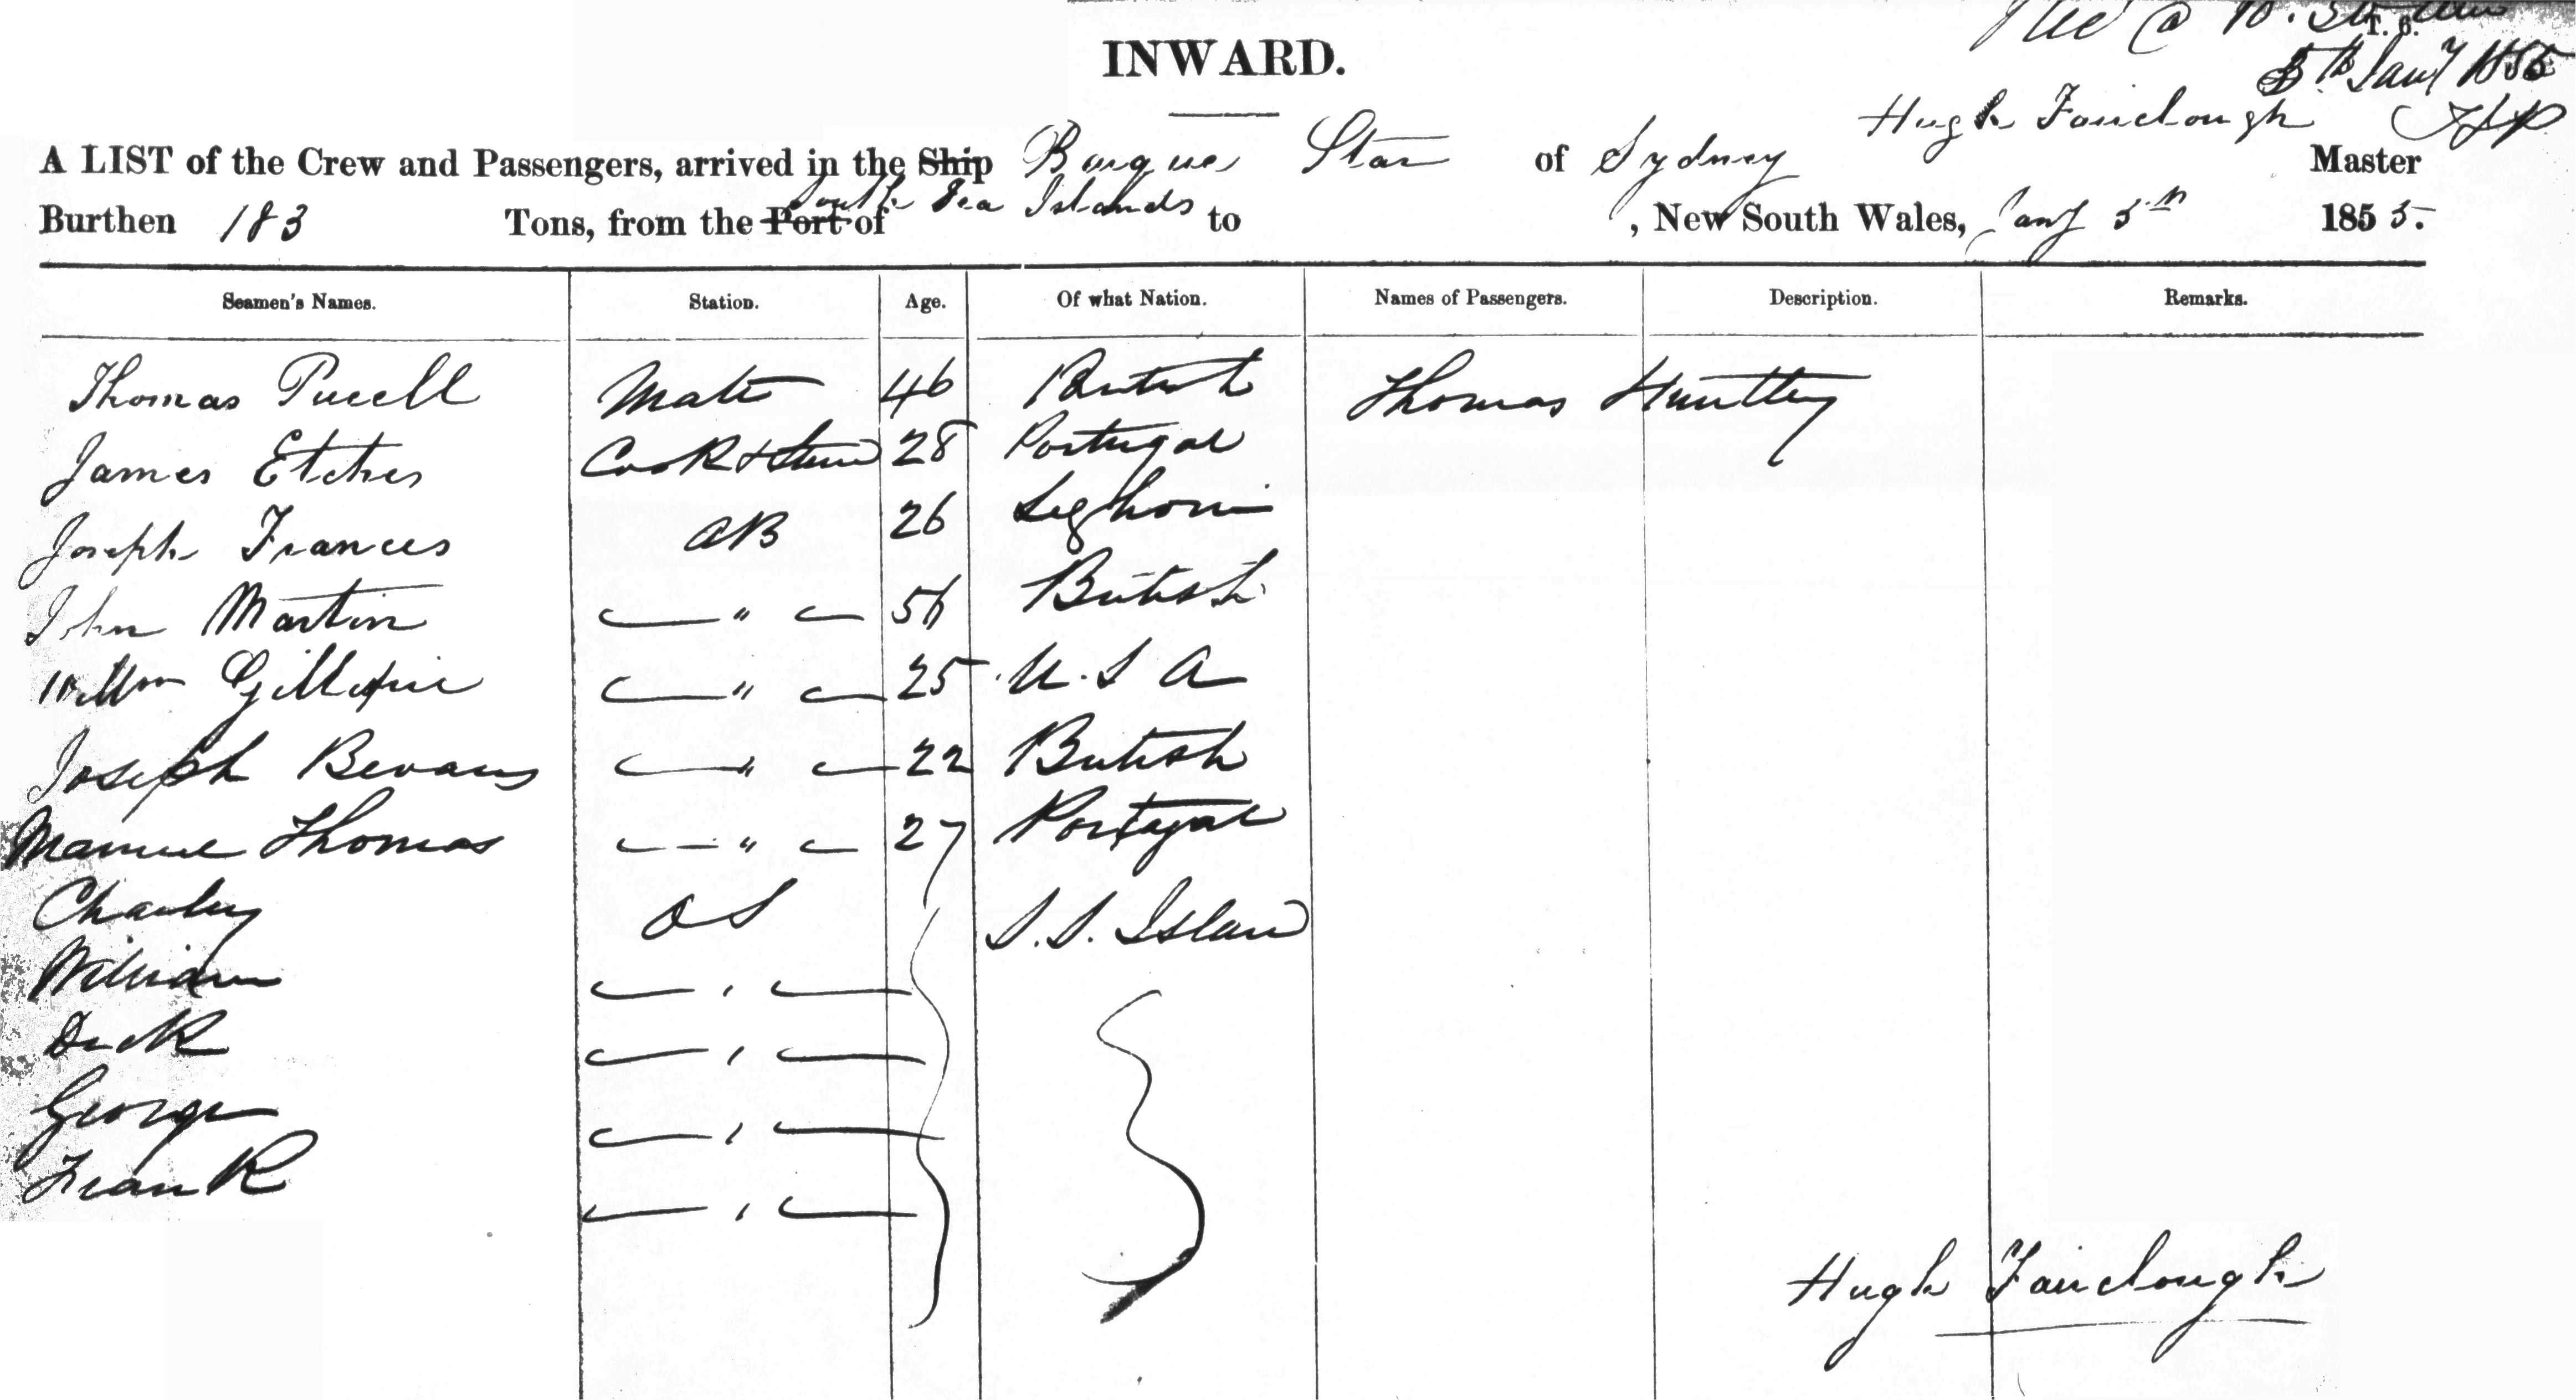 INWARD.
T. S.
5th Jany 1855
Hugh Fairclough
A LIST of the Crew and Passengers, arrived in the Ship Barque Star of Sydney Master
Burthen 183 Tons, from the Port of South Sea Islands to , New South Wales, Jany 5th 1855.
Seamen's Names. Station. Age. Of what Nation. Names of Passengers. Description. Remarks.
Thomas Mate 46 British Thomas Huntley
James Etches Cook & Stew 28 Portugal
Joseph Frances AB 26 Leghorn
John Martin " 56 British
Willm Gillespie " 25 U. S A
Joseph Bevans " 22 British
Manuel Thomas " 27 Portugal
Charley O S S. S. Islan
William "
Dick "
George "
Frank "
Hugh Fairclough